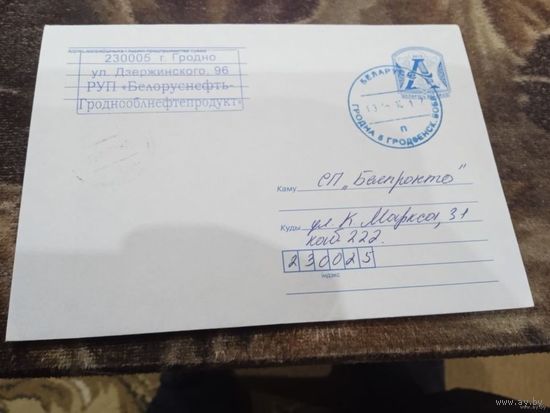 230005 г. Гродно
ул. Дзержинского, 96
РУП «Белоруснефть-
Гроднооблнефтепродукт»
БЕЛАРУСЬ
А
П
Каму СП „Белпронто"
Куды ул К. Маркса, 31
каб 222.
230025
індэкс
www.ay.by